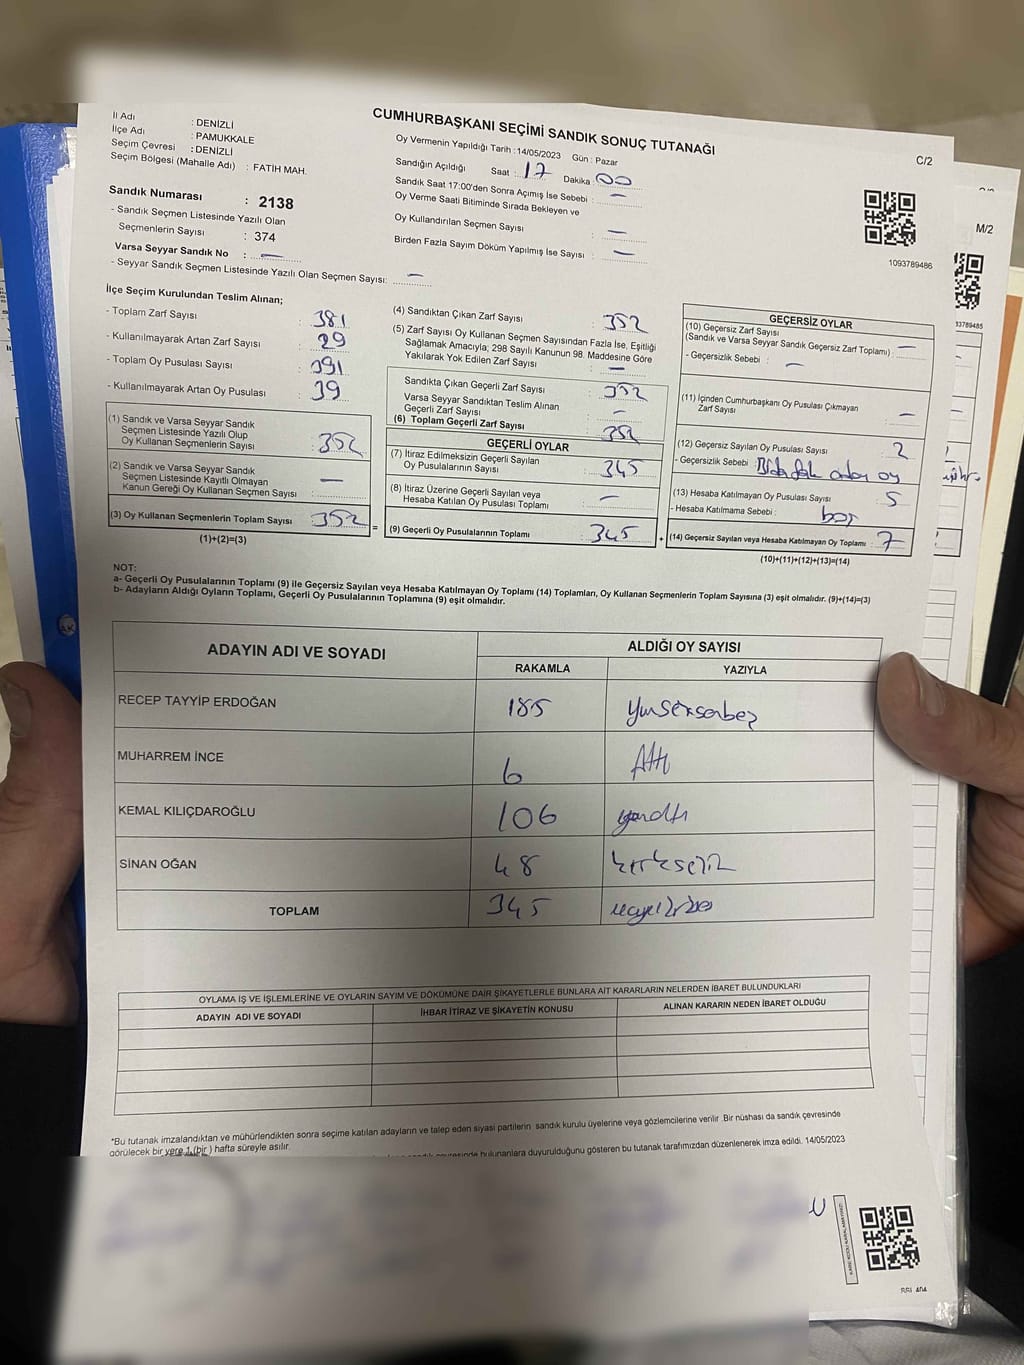 CUMHURBAŞKANI SEÇİMİ SANDIK SONUÇ TUTANAĞI
C/2
İl Adı : DENİZLİ
İlçe Adı : PAMUKKALE
Seçim Çevresi : DENİZLİ
Seçim Bölgesi (Mahalle Adı) : FATİH MAH.
Sandık Numarası : 2138
- Sandık Seçmen Listesinde Yazılı Olan
Seçmenlerin Sayısı : 374
Varsa Seyyar Sandık No : —
- Seyyar Sandık Seçmen Listesinde Yazılı Olan Seçmen Sayısı: —
Oy Vermenin Yapıldığı Tarih : 14/05/2023 Gün : Pazar
Sandığın Açıldığı Saat : 17 Dakika 00
Sandık Saat 17:00'den Sonra Açımış İse Sebebi : —
Oy Verme Saati Bitiminde Sırada Bekleyen ve
Oy Kullandırılan Seçmen Sayısı : —
Birden Fazla Sayım Döküm Yapılmış İse Sayısı : —
1093789486
M/2
İlçe Seçim Kurulundan Teslim Alınan;
- Toplam Zarf Sayısı : 381
- Kullanılmayarak Artan Zarf Sayısı : 29
- Toplam Oy Pusulası Sayısı : 391
- Kullanılmayarak Artan Oy Pusulası : 39
(1) Sandık ve Varsa Seyyar Sandık
Seçmen Listesinde Yazılı Olup
Oy Kullanan Seçmenlerin Sayısı : 352
(2) Sandık ve Varsa Seyyar Sandık
Seçmen Listesinde Kayıtlı Olmayan
Kanun Gereği Oy Kullanan Seçmen Sayısı : —
(3) Oy Kullanan Seçmenlerin Toplam Sayısı : 352 =
(1)+(2)=(3)
(4) Sandıktan Çıkan Zarf Sayısı : 352
(5) Zarf Sayısı Oy Kullanan Seçmen Sayısından Fazla İse, Eşitliği
Sağlamak Amacıyla; 298 Sayılı Kanunun 98. Maddesine Göre
Yakılarak Yok Edilen Zarf Sayısı : —
Sandıkta Çıkan Geçerli Zarf Sayısı : 352
Varsa Seyyar Sandıktan Teslim Alınan
Geçerli Zarf Sayısı : —
(6) Toplam Geçerli Zarf Sayısı : 352
GEÇERLİ OYLAR
(7) İtiraz Edilmeksizin Geçerli Sayılan
Oy Pusulalarının Sayısı : 345
(8) İtiraz Üzerine Geçerli Sayılan veya
Hesaba Katılan Oy Pusulası Toplamı : —
(9) Geçerli Oy Pusulalarının Toplamı : 345 +
GEÇERSİZ OYLAR
(10) Geçersiz Zarf Sayısı
(Sandık ve Varsa Seyyar Sandık Geçersiz Zarf Toplamı) : —
- Geçersizlik Sebebi : —
(11) İçinden Cumhurbaşkanı Oy Pusulası Çıkmayan
Zarf Sayısı : —
(12) Geçersiz Sayılan Oy Pusulası Sayısı : 2
- Geçersizlik Sebebi : oy
(13) Hesaba Katılmayan Oy Pusulası Sayısı : 5
- Hesaba Katılmama Sebebi : boş
(14) Geçersiz Sayılan veya Hesaba Katılmayan Oy Toplamı : 7
(10)+(11)+(12)+(13)=(14)
NOT:
a- Geçerli Oy Pusulalarının Toplamı (9) ile Geçersiz Sayılan veya Hesaba Katılmayan Oy Toplamı (14) Toplamları, Oy Kullanan Seçmenlerin Toplam Sayısına (3) eşit olmalıdır. (9)+(14)=(3)
b- Adayların Aldığı Oyların Toplamı, Geçerli Oy Pusulalarının Toplamına (9) eşit olmalıdır.
ADAYIN ADI VE SOYADI
ALDIĞI OY SAYISI
RAKAMLA YAZIYLA
RECEP TAYYİP ERDOĞAN 185 yüzseksenbeş
MUHARREM İNCE 6 Altı
KEMAL KILIÇDAROĞLU 106 yüzaltı
SİNAN OĞAN 48 kırksekiz
TOPLAM 345
OYLAMA İŞ VE İŞLEMLERİNE VE OYLARIN SAYIM VE DÖKÜMÜNE DAİR ŞİKAYETLERLE BUNLARA AİT KARARLARIN NELERDEN İBARET BULUNDUKLARI
ADAYIN ADI VE SOYADI İHBAR İTİRAZ VE ŞİKAYETİN KONUSU ALINAN KARARIN NEDEN İBARET OLDUĞU
*Bu tutanak imzalandıktan ve mühürlendikten sonra seçime katılan adayların ve talep eden siyasi partilerin sandık kurulu üyelerine veya gözlemcilerine verilir .Bir nüshası da sandık çevresinde
görülecek bir yere 1 (bir ) hafta süreyle asılır.
bulunanlara duyurulduğunu gösteren bu tutanak tarafımızdan düzenlenerek imza edildi. 14/05/2023